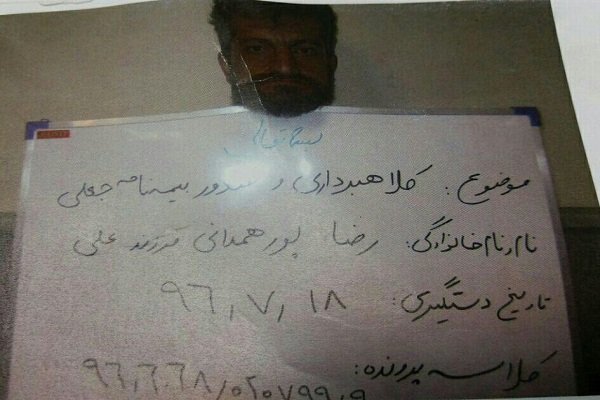 موضوع: کلاهبرداری و صدور بیمه‌نامه جعلی
نام، نام خانوادگی: رضا پورهمدانی فرزند علی
تاریخ دستگیری: ۹۶/۷/۱۸
کلاسه پرونده: